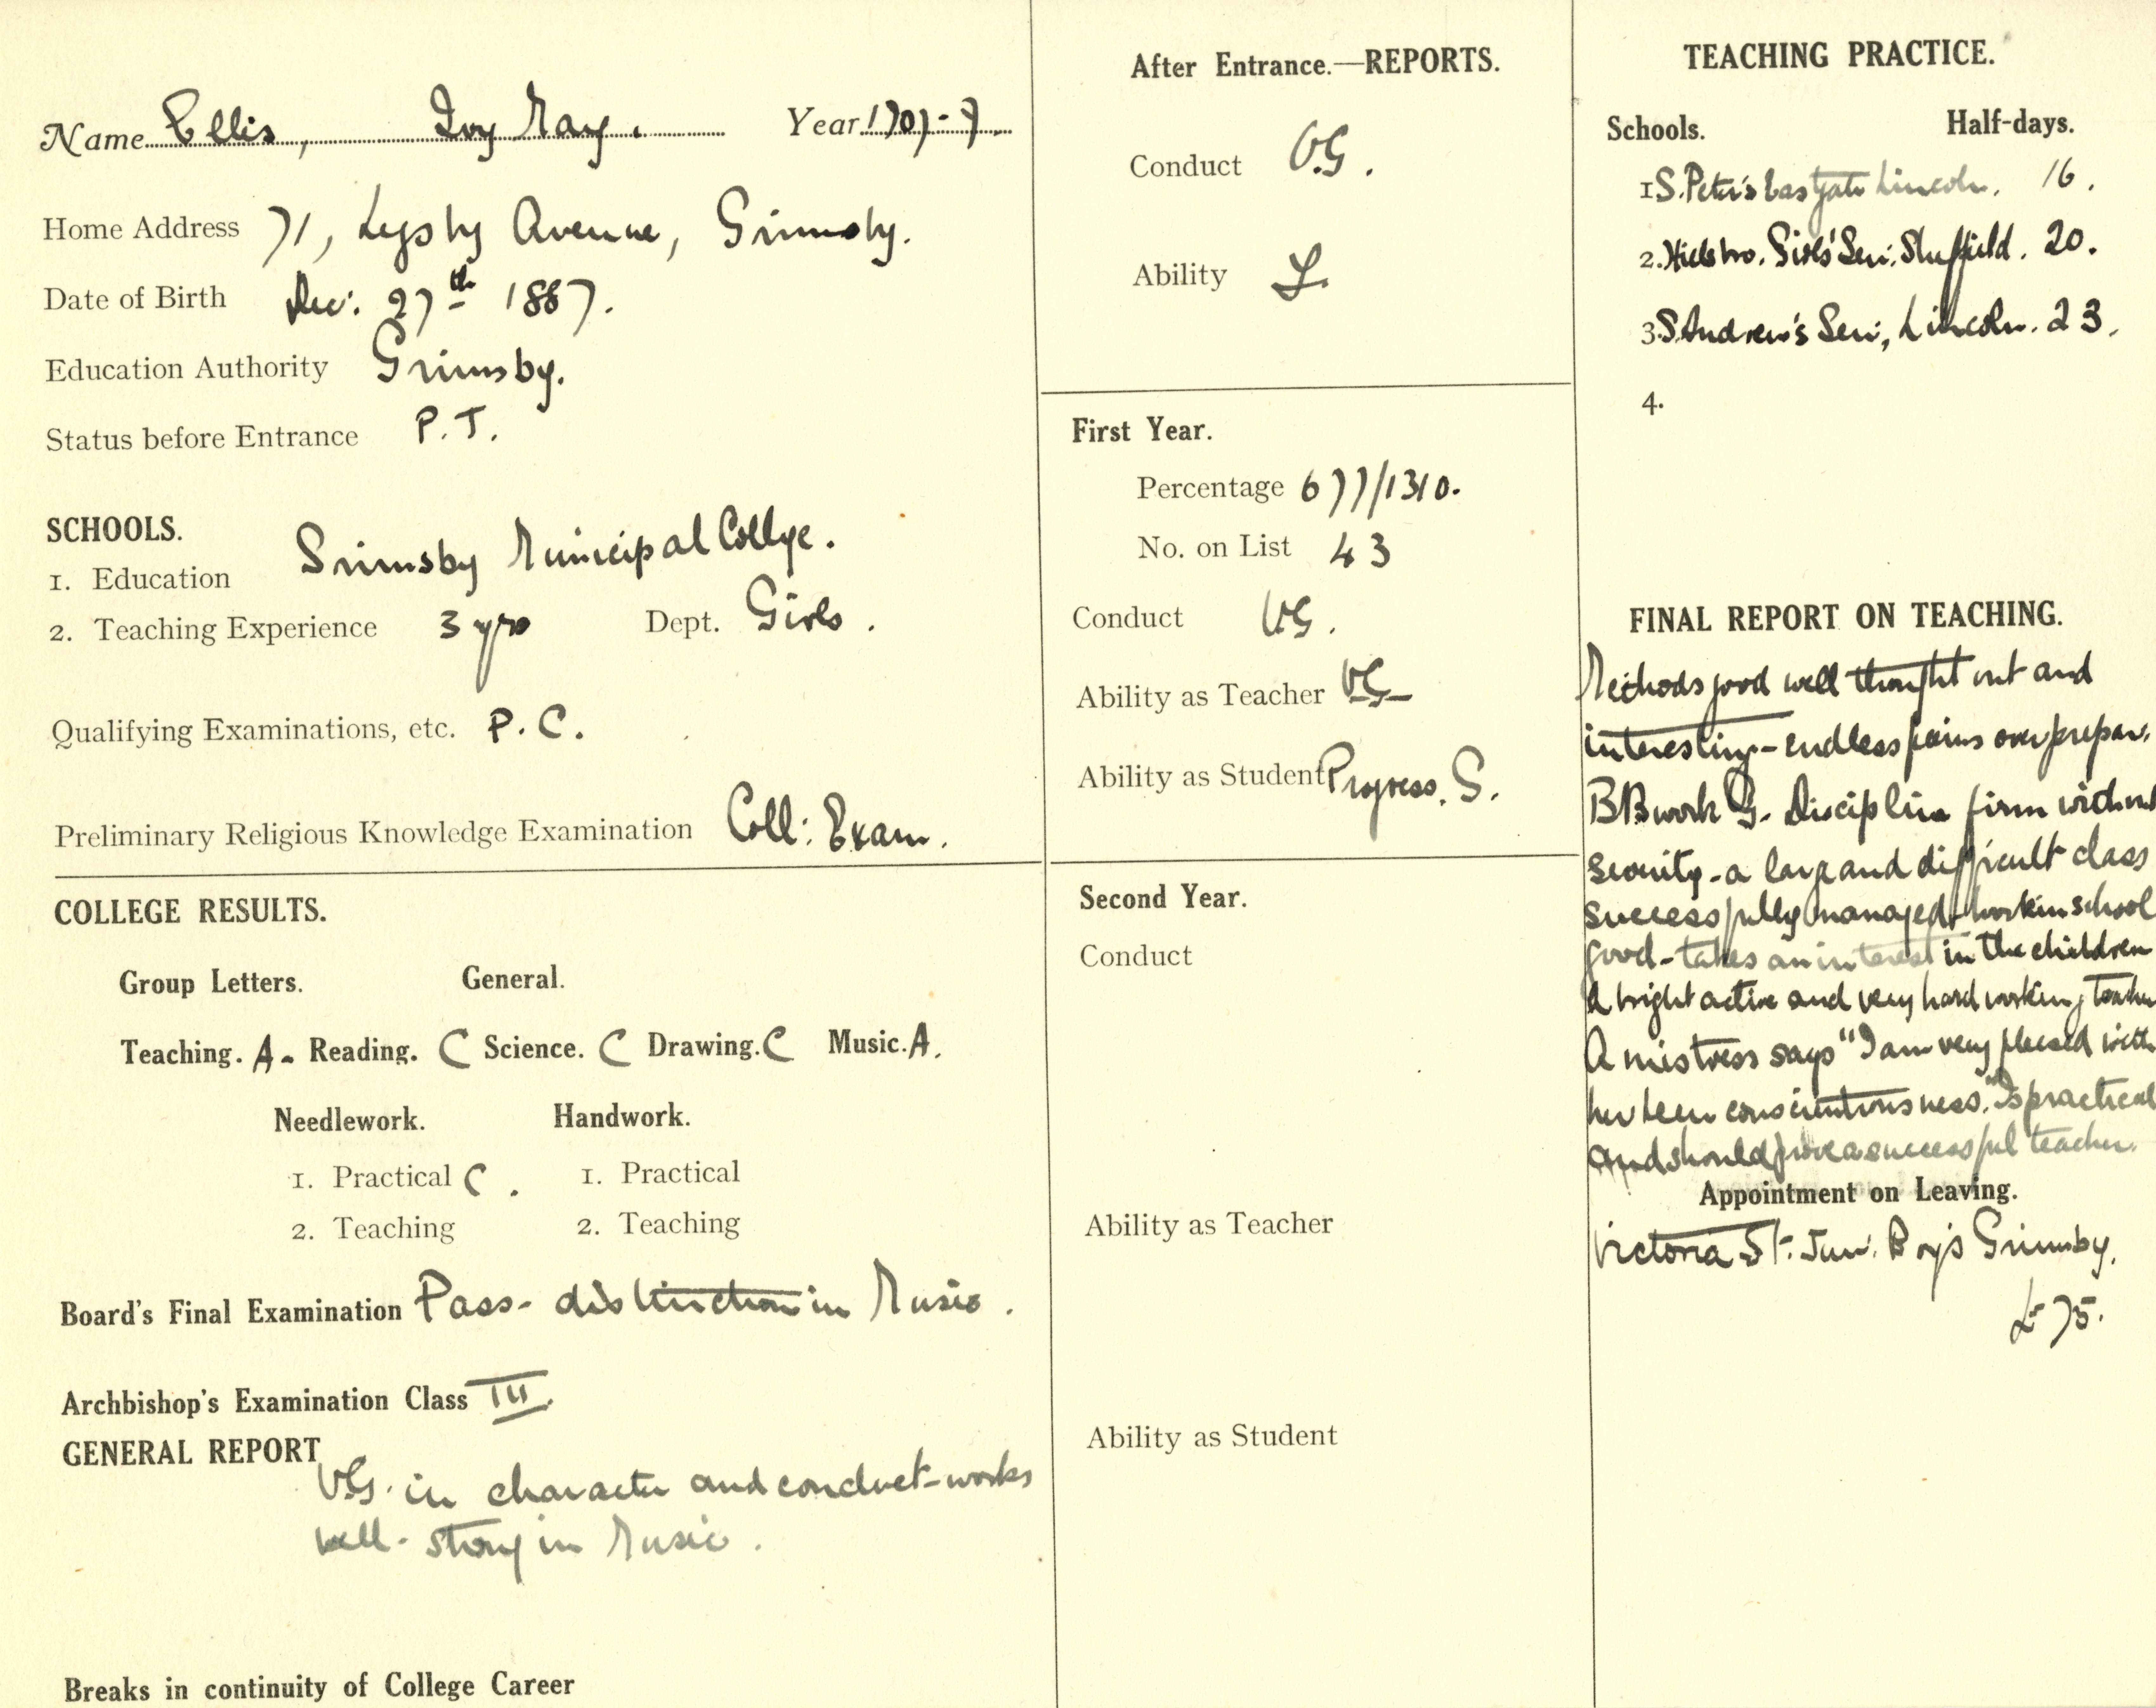 Name Ellis, Ivy May. Year 1907-9.
Home Address 71, Legsby Avenue, Grimsby.
Date of Birth Dec: 27th 1887.
Education Authority Grimsby.
Status before Entrance P.T.
SCHOOLS.
1. Education Grimsby Municipal College.
2. Teaching Experience 3 yrs Dept. Girls.
Qualifying Examinations, etc. P.C.
Preliminary Religious Knowledge Examination Coll: Exam.
COLLEGE RESULTS.
Group Letters. General.
Teaching. A- Reading. C Science. C Drawing. C Music. A.
Needlework. Handwork.
1. Practical C. 1. Practical
2. Teaching 2. Teaching
Board's Final Examination Pass- distinction in Music.
Archbishop's Examination Class III.
GENERAL REPORT
V.G. in character and conduct - works
well - strong in Music.
Breaks in continuity of College Career
After Entrance.—REPORTS.
Conduct V.G.
Ability
First Year.
Percentage 677/1310.
No. on List 43
Conduct V.G.
Ability as Teacher VG
Ability as Student Progress. G.
Second Year.
Conduct
Ability as Teacher
Ability as Student
TEACHING PRACTICE.
Schools. Half-days.
1 S. Peter's Eastgate Lincoln. 16.
2. Hillsbro. Girls' Sen: Sheffield. 20.
3 S. Andrew's Sen:, Lincoln. 23.
4.
FINAL REPORT ON TEACHING.
Methods good well thought out and
interesting - endless pains over prepar.
BB work G. Discipline firm without
severity - a large and difficult class
successfully managed - work in school
good - takes an interest in the children
A bright active and very hard working teacher
A mistress says "I am very pleased with
her keen conscientiousness." Is practical
and should prove a successful teacher.
Appointment on Leaving.
Victoria St. Jun. Boys Grimsby.
£75.